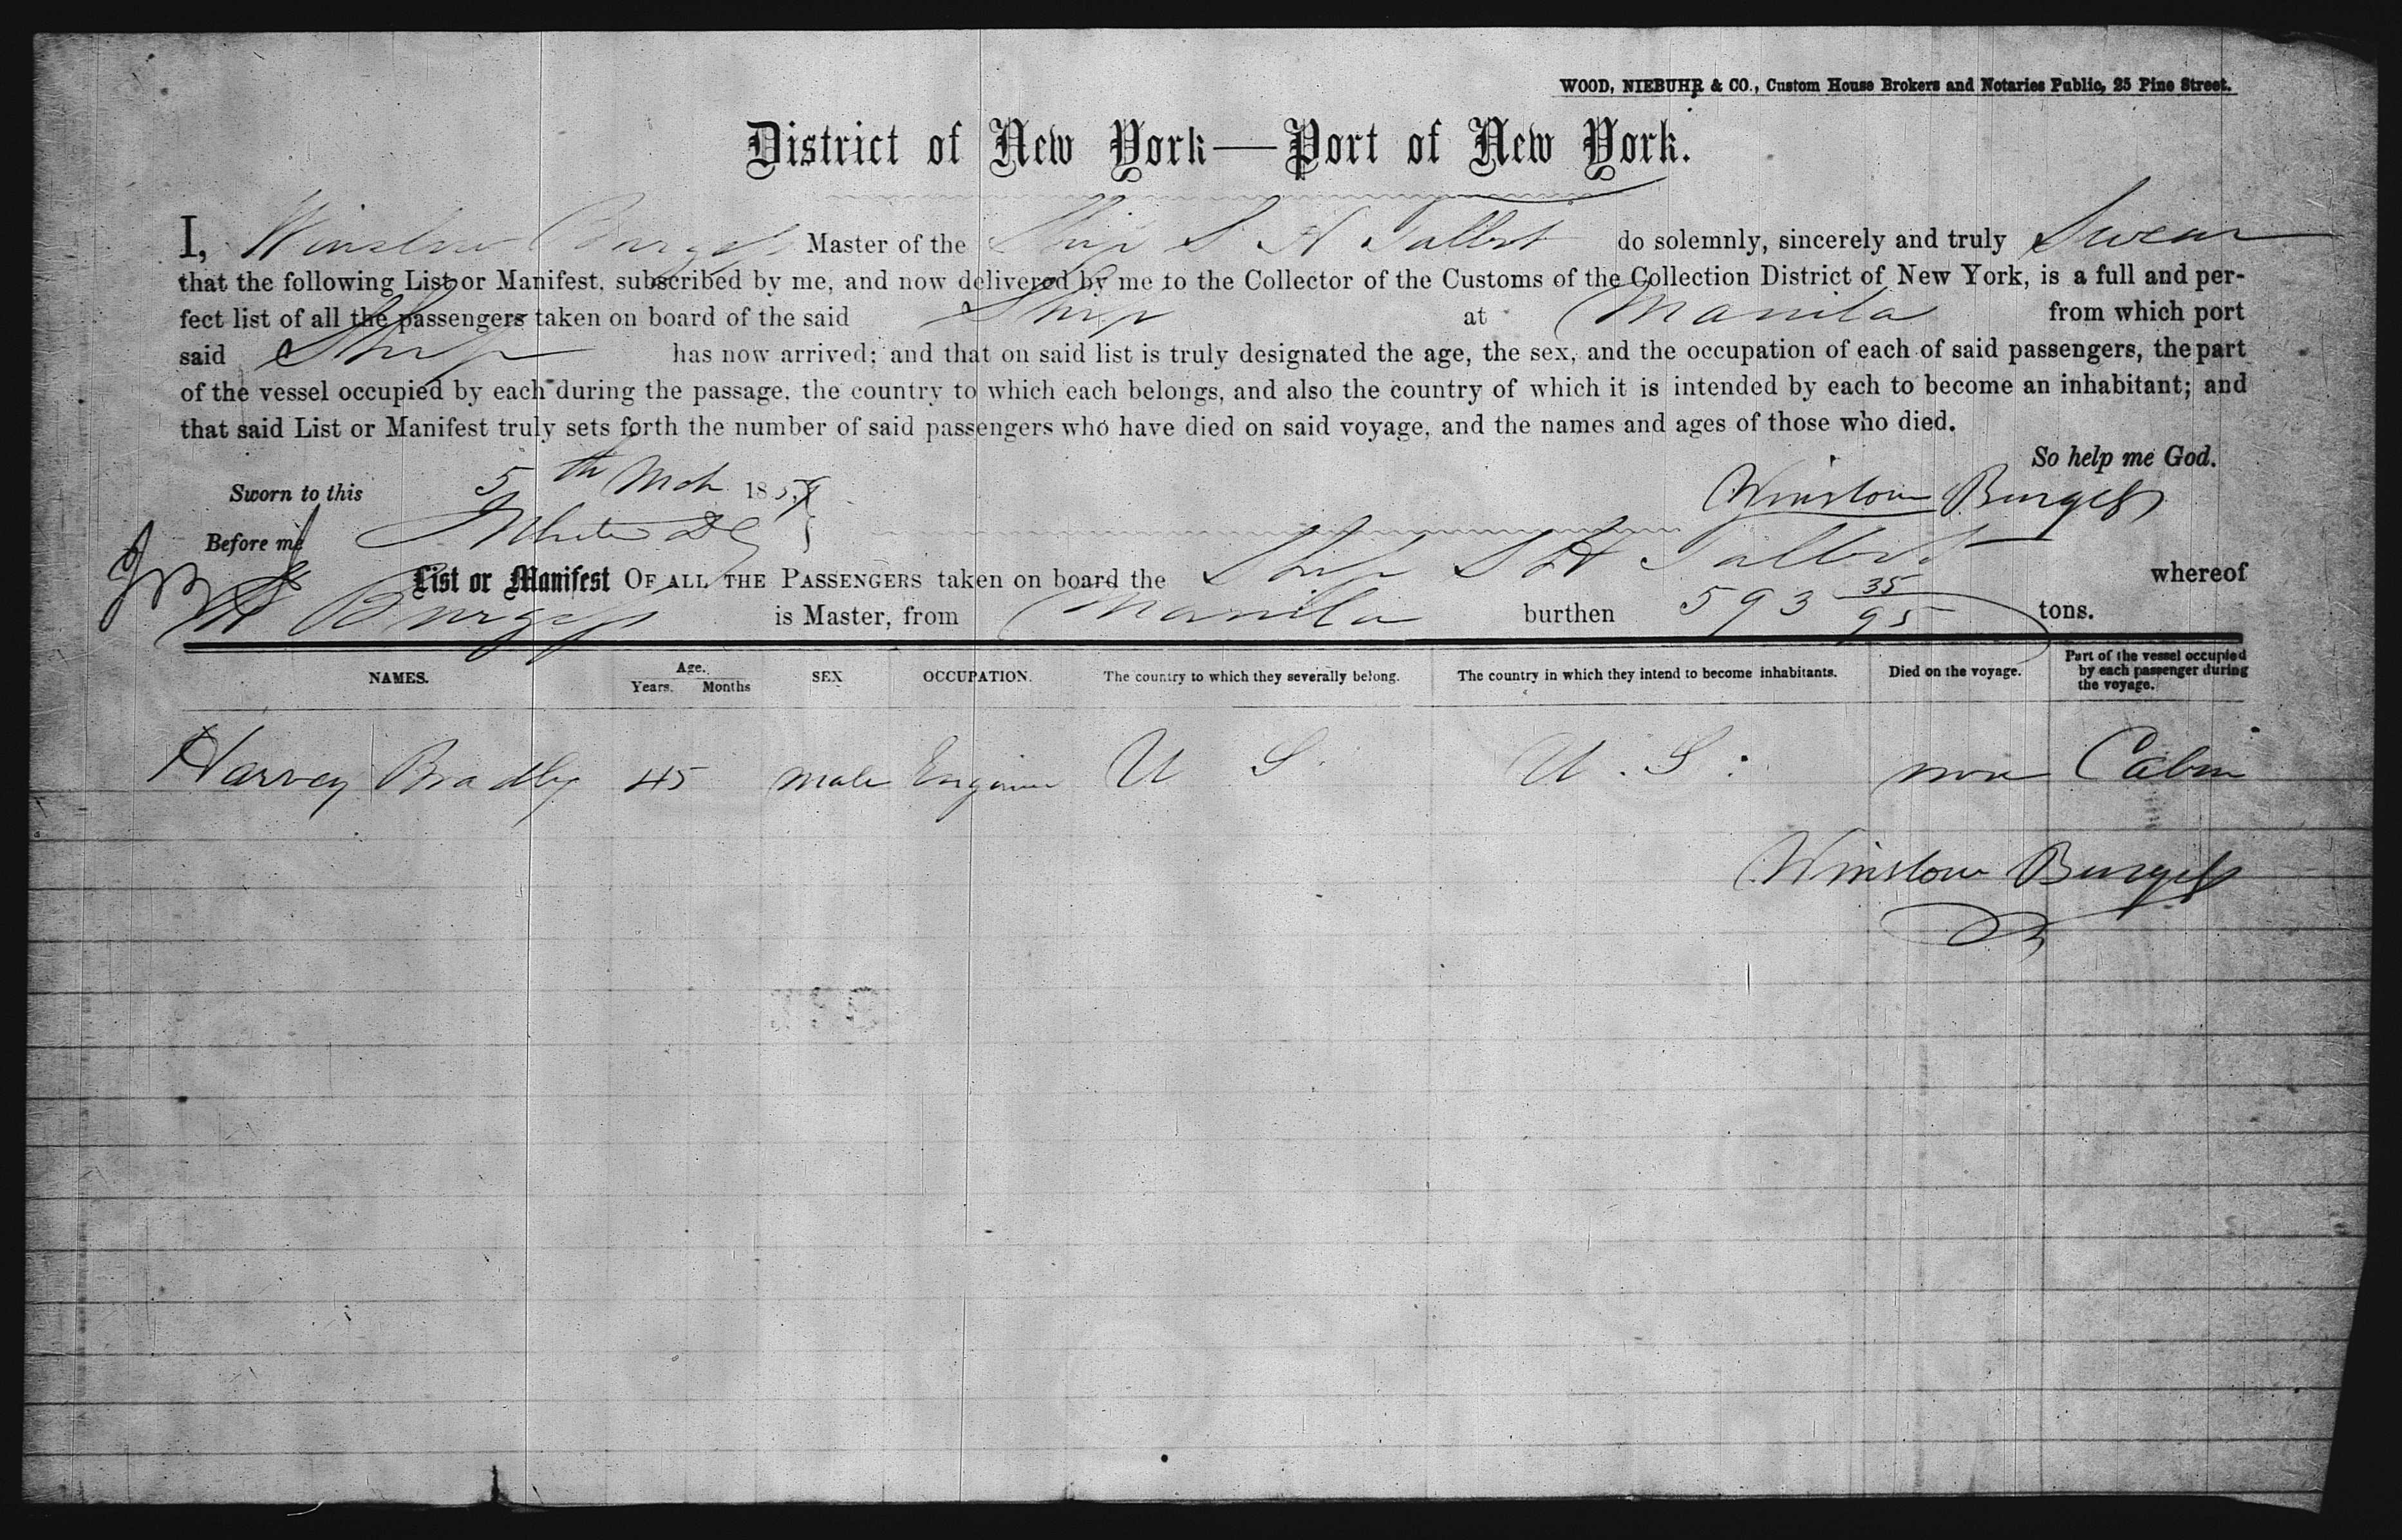 WOOD, NIEBUHR & CO., Custom House Brokers and Notaries Public, 25 Pine Street.
District of New York—Port of New York.
I, Winslow Burgess Master of the Ship S H Talbot do solemnly, sincerely and truly Swear
that the following List or Manifest, subscribed by me, and now delivered by me to the Collector of the Customs of the Collection District of New York, is a full and per-
fect list of all the passengers taken on board of the said Ship at Manila from which port
said Ship has now arrived; and that on said list is truly designated the age, the sex, and the occupation of each of said passengers, the part
of the vessel occupied by each during the passage, the country to which each belongs, and also the country of which it is intended by each to become an inhabitant; and
that said List or Manifest truly sets forth the number of said passengers who have died on said voyage, and the names and ages of those who died.
So help me God.
Sworn to this 5th Mch 185 Winslow Burgess
Before me
List or Manifest OF ALL THE PASSENGERS taken on board the Ship S H Talbot whereof
W Burgess is Master, from Manila burthen 593 35/95 tons.
NAMES. Age. Years. Months SEX OCCUPATION. The country to which they severally belong. The country in which they intend to become inhabitants. Died on the voyage. Part of the vessel occupied by each passenger during the voyage.
Harvey Bradly 45 male Engineer U S. U. S. non Cabin
Winslow Burgess